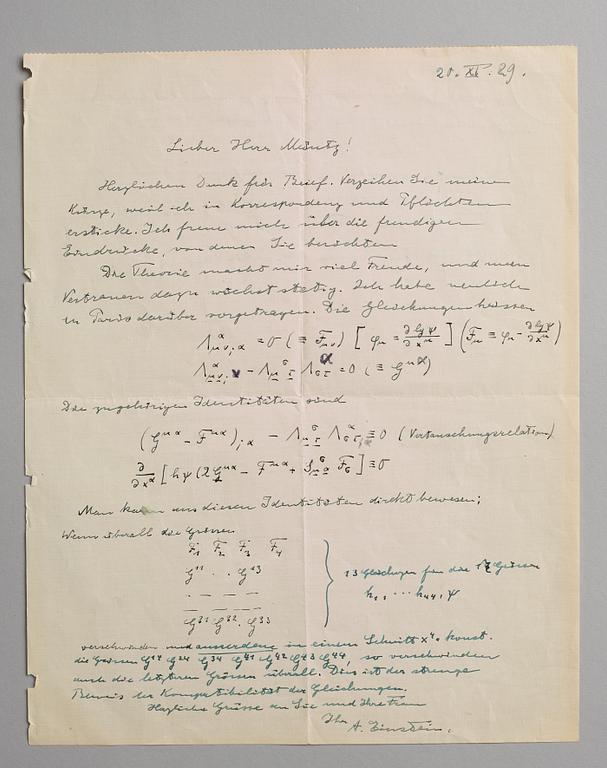 20. XI. 29.
Lieber Herr Müntz!
Herzlichen Dank für Brief. Verzeihen Sie meine
Kürze, weil ich in Korrespondenz und Pflichten
ersticke. Ich freue mich über die freudigen
Eindrücke, von denen Sie berichten
Die Theorie macht mir viel Freude, und mein
Vertrauen dazu wächst stetig. Ich habe neulich
in Paris darüber vorgetragen. Die Gleichungen heissen
Λ^α_{μν;α} = 0 (≡ F_{μν}) [φ_μ = ∂lgψ/∂x^μ] (F_μ ≡ φ_μ − ∂lgψ/∂x^μ)
Λ^α_{μν;ν} − Λ^σ_{μτ} Λ^α_{στ} = 0 (≡ G^{μα})
Die zugehörigen Identitäten sind
(G^{μα} − F^{μα})_{;α} − Λ^σ_{μτ} Λ^α_{στ;α} ≡ 0 (Vertauschungsrelation)
∂/∂x^α [hψ(2G^{μα} − F^{μα} + S^σ_{μα} F_σ] ≡ 0
Man kann aus diesen Identitäten direkt beweisen;
Wenn überall die Grössen
F_1 F_2 F_3 F_4
G^{11} . . G^{13}
. — — —
G^{31} G^{32} . G^{33}
13 Gleichungen für die 17 Grössen
h_{11} ... h_{44}, ψ
verschwinden und ausserdem in einem Schnitt x^4 = konst.
die Grössen G^{14} G^{24} G^{34} G^{41} G^{42} G^{43} G^{44}, so verschwinden
auch die letzteren Grössen überall. Dies ist der strenge
Beweis der Kompatibilität der Gleichungen.
Herzliche Grüsse an Sie und Ihre Frau
Ihr
A. Einstein.